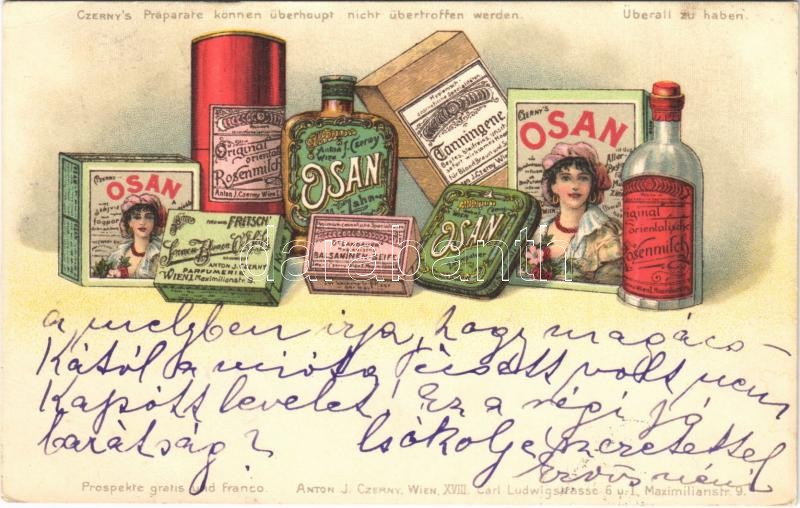 CZERNY'S Präparate können überhaupt nicht übertroffen werden. Überall zu haben.
CZERNY'S
OSAN
Original
orientalische
Rosenmilch
Anton J. Czerny Wien
Anton J. Czerny
Wien
OSAN
Tanningene
CZERNY'S
OSAN
Original
orientalische
Rosenmilch
FRITSCH'
ANTON J. CZERNY
PARFUMERIE
WIEN, I. Maximilianstr. 9.
BALSAMINEN SEIFE
OSAN
darabanth
a melyben irja, hogy magács-
kától a mióta férjezett volt nem
kapott levelet! Ez a régi jó
barátság? Csókolja szeretettel
Prospekte gratis und Franco. ANTON J. CZERNY, WIEN, XVIII. Carl Ludwigstrasse 6 u. I, Maximilianstr. 9.